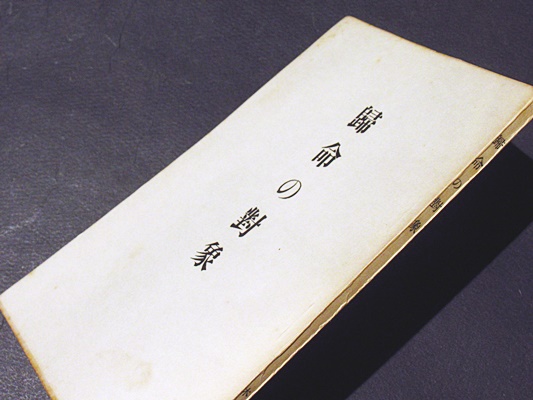 歸命の對象
歸命の對象